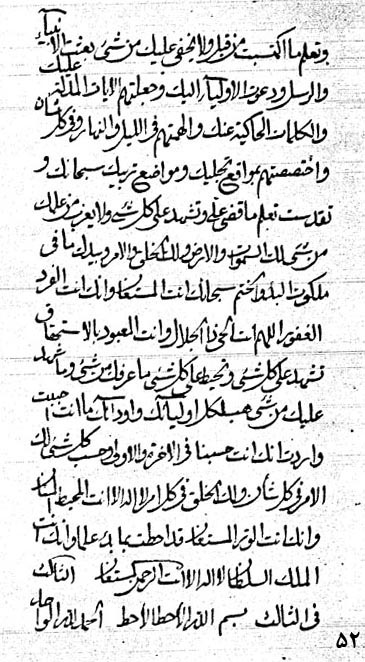 وتعلم ما اكتسبت من قبل ولا يخفى عليك من شيء بعثت الانبياء
والرسل ودعوت الاولياء اليك وجعلتهم الايات المدلة عليك
والكلمات الحاكية عنك والهمتهم في الليل والنهار وفي كل شان
واختصصتهم بمواقع تجليك ومواضع تربيك سبحانك و
تقدست تعلم ما قضى علي وتشهد على كل شيء ولا يعزب من علمك
من شيء لك السموات والارض ولك الخلق والامر وبيدك ما في
ملكوت البدء والختم سبحانك انت المستعان وانك انت الفرد
الغفور اللهم انت الحي ذا الجلال وانت المعبود بالاستحقاق
تشهد على كل شيء وتحيط على كل شيء ما عرفك من شيء وما شهد
عليك من شيء هب لكل اوليائك واودائك ما انت احببت
واردت انك انت حسبنا في الاخرة والاولى وحسب كل شيء لك
الامر في كل شان ولك الخلق في كل امر لا اله الا انت المحيط المنان
وانك انت الوتر المستعان قد احطت بما بدء علما وانك انت
الملك السلطان لا اله الا انت الرحمن المستعان الثالث
في الثالث بسم الله الاحط الاحط الحمد لله الواحد
۵۲